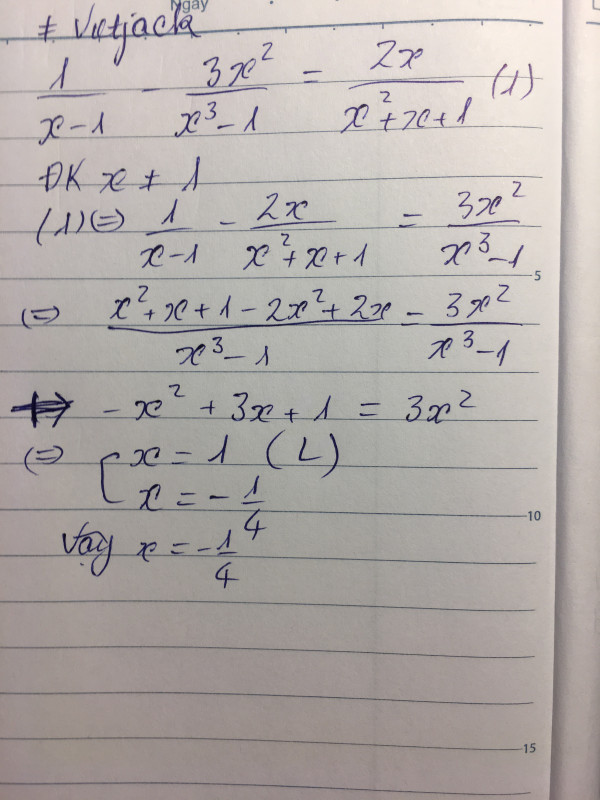 Ngày
# Vietjack
1/(x-1) - 3x²/(x³-1) = 2x/(x²+x+1) (1)
ĐK x ≠ 1
(1)(=) 1/(x-1) - 2x/(x²+x+1) = 3x²/(x³-1)
5
(=) (x²+x+1-2x²+2x)/(x³-1) = 3x²/(x³-1)
-x² + 3x + 1 = 3x²
(=) [ x = 1 (L)
x = -1/4
10
Vậy x = -1/4
15